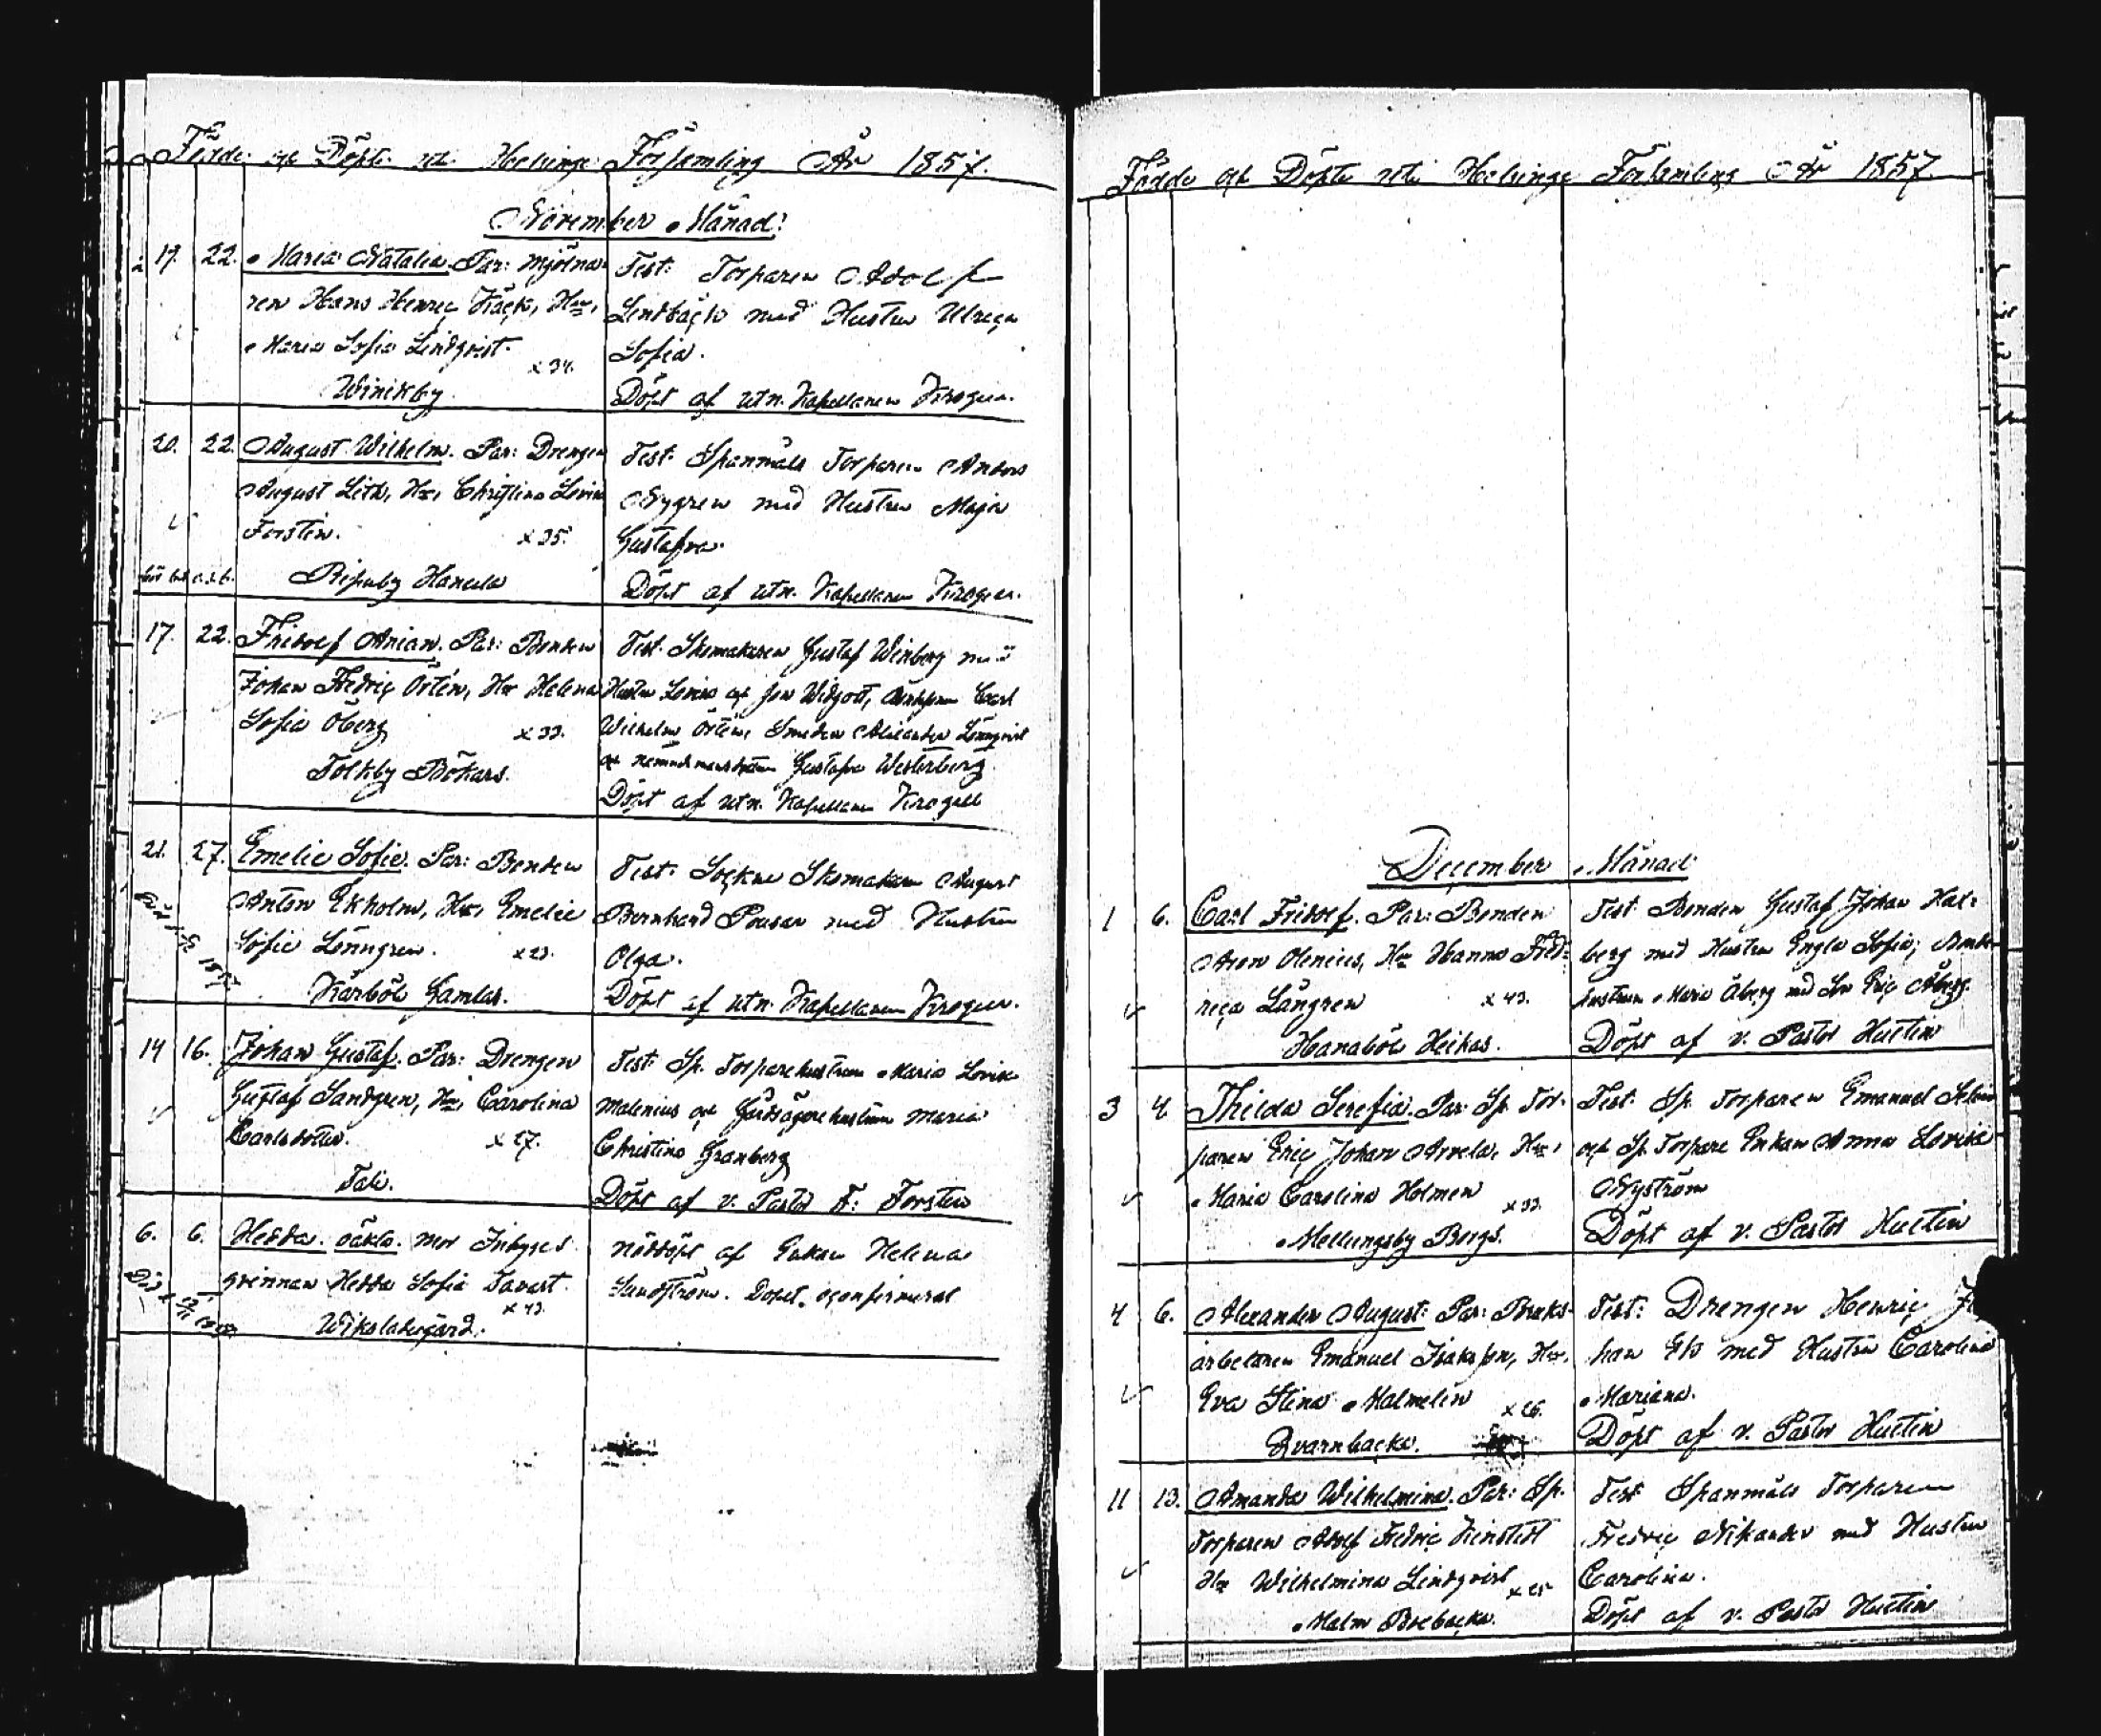 Födde och Döpte uti Helsinge Församling År 1857.
November Månad:
17. 22. Maria Natalia. Par: Mjölna-
ren Hans Henric Käck, Hu,
Maria Sofia Lindqvist.
x 34.
Winikby.
Test: Torparen Adolf
Lindbäck med Hustru Ulrica
Sofia.
Döpt af utn. Kapellanen
20. 22. August Wilhelm. Par: Drengen
August Lith, Hu, Christina Lovisa
Forstén. x 35.
Ripuby Hanula
Test: Spanmåls Torparen Anders
Nygren med Hustru Maja
Gustafva.
Döpt af utn. Kapellanen
17. 22. Fridolf Anian. Par: Bonden
Johan Fredric Örtén, Hu Helena
Sofia Öberg x 33.
Tolkby Bökars.
Test: Skomakaren Gustaf Winberg med
Hustru Lovisa och Carl
Wilhelm Örtén, Smeden Alexander Lönnqvist
och Gustafva Westerberg
Döpt af utn. Kapellanen Krogell
21. 27. Emelie Sofie. Par: Bonden
Anton Ekholm, Hu, Emelie
Sofie Lönngren. x 23.
Kårböle Gamlas.
Test: Sockne Skomakaren August
Bernhard med Hustru
Olga.
Döpt af utn. Kapellanen
14 16. Johan Gustaf. Par: Drengen
Gustaf Sandgren, Hu, Carolina
Carlsdotter. x 27.
Tali.
Test: Sp. Torparehustrun Maria Lovisa
Malenius och Gårdsägarehustrun Maria
Christina Granberg
Döpt af v. Pastor F: Forstén
6. 6. Hedda. oäkta. Mor Inhyges
qvinnan Hedda Sofia Tavast.
x 43.
Wiksladugård.
Nöddöpt af Enkan Helena
Sundström. Dopet
Födde och Döpte uti Helsinge Församling År 1857.
December Månad
1 6. Carl Fridolf. Par: Bonden
Aron Olenius, Hu Hanna Fred-
rica Långren x 43.
Hanaböle Heikas.
Test: Bonden Gustaf Johan Hal-
berg med Hustru Engla Sofia;
hustrun Maria Åberg med Son Eric Åberg.
Döpt af v. Pastor Hustin
3 4 Thilda Serefia. Par: Sp. Tor-
paren Eric Johan Arvela, Hu,
Maria Carolina Holmén x 33.
Mellungsby Bergs.
Test: Sp. Torparen Emanuel
och Sp. Torpare Enkan Anna Lovisa
Nyström
Döpt af v. Pastor Hustin
4 6. Alexander August: Par: Bruks-
arbetaren Emanuel Isaksson, Hu,
Eva Stina Malmelin x 26.
Qvarnbacka.
Test: Drengen Henric
han Ek med Hustru Carolina
Mariana.
Döpt af v. Pastor Hustin
11 13. Amanda Wilhelmina. Par: Sp.
Torparen Adolf Fredric
Hu Wilhelmina Lindqvist x 25
Malm
Test: Spanmåls Torparen
Fredric Nikander med Hustru
Carolina.
Döpt af v. Pastor Hustin